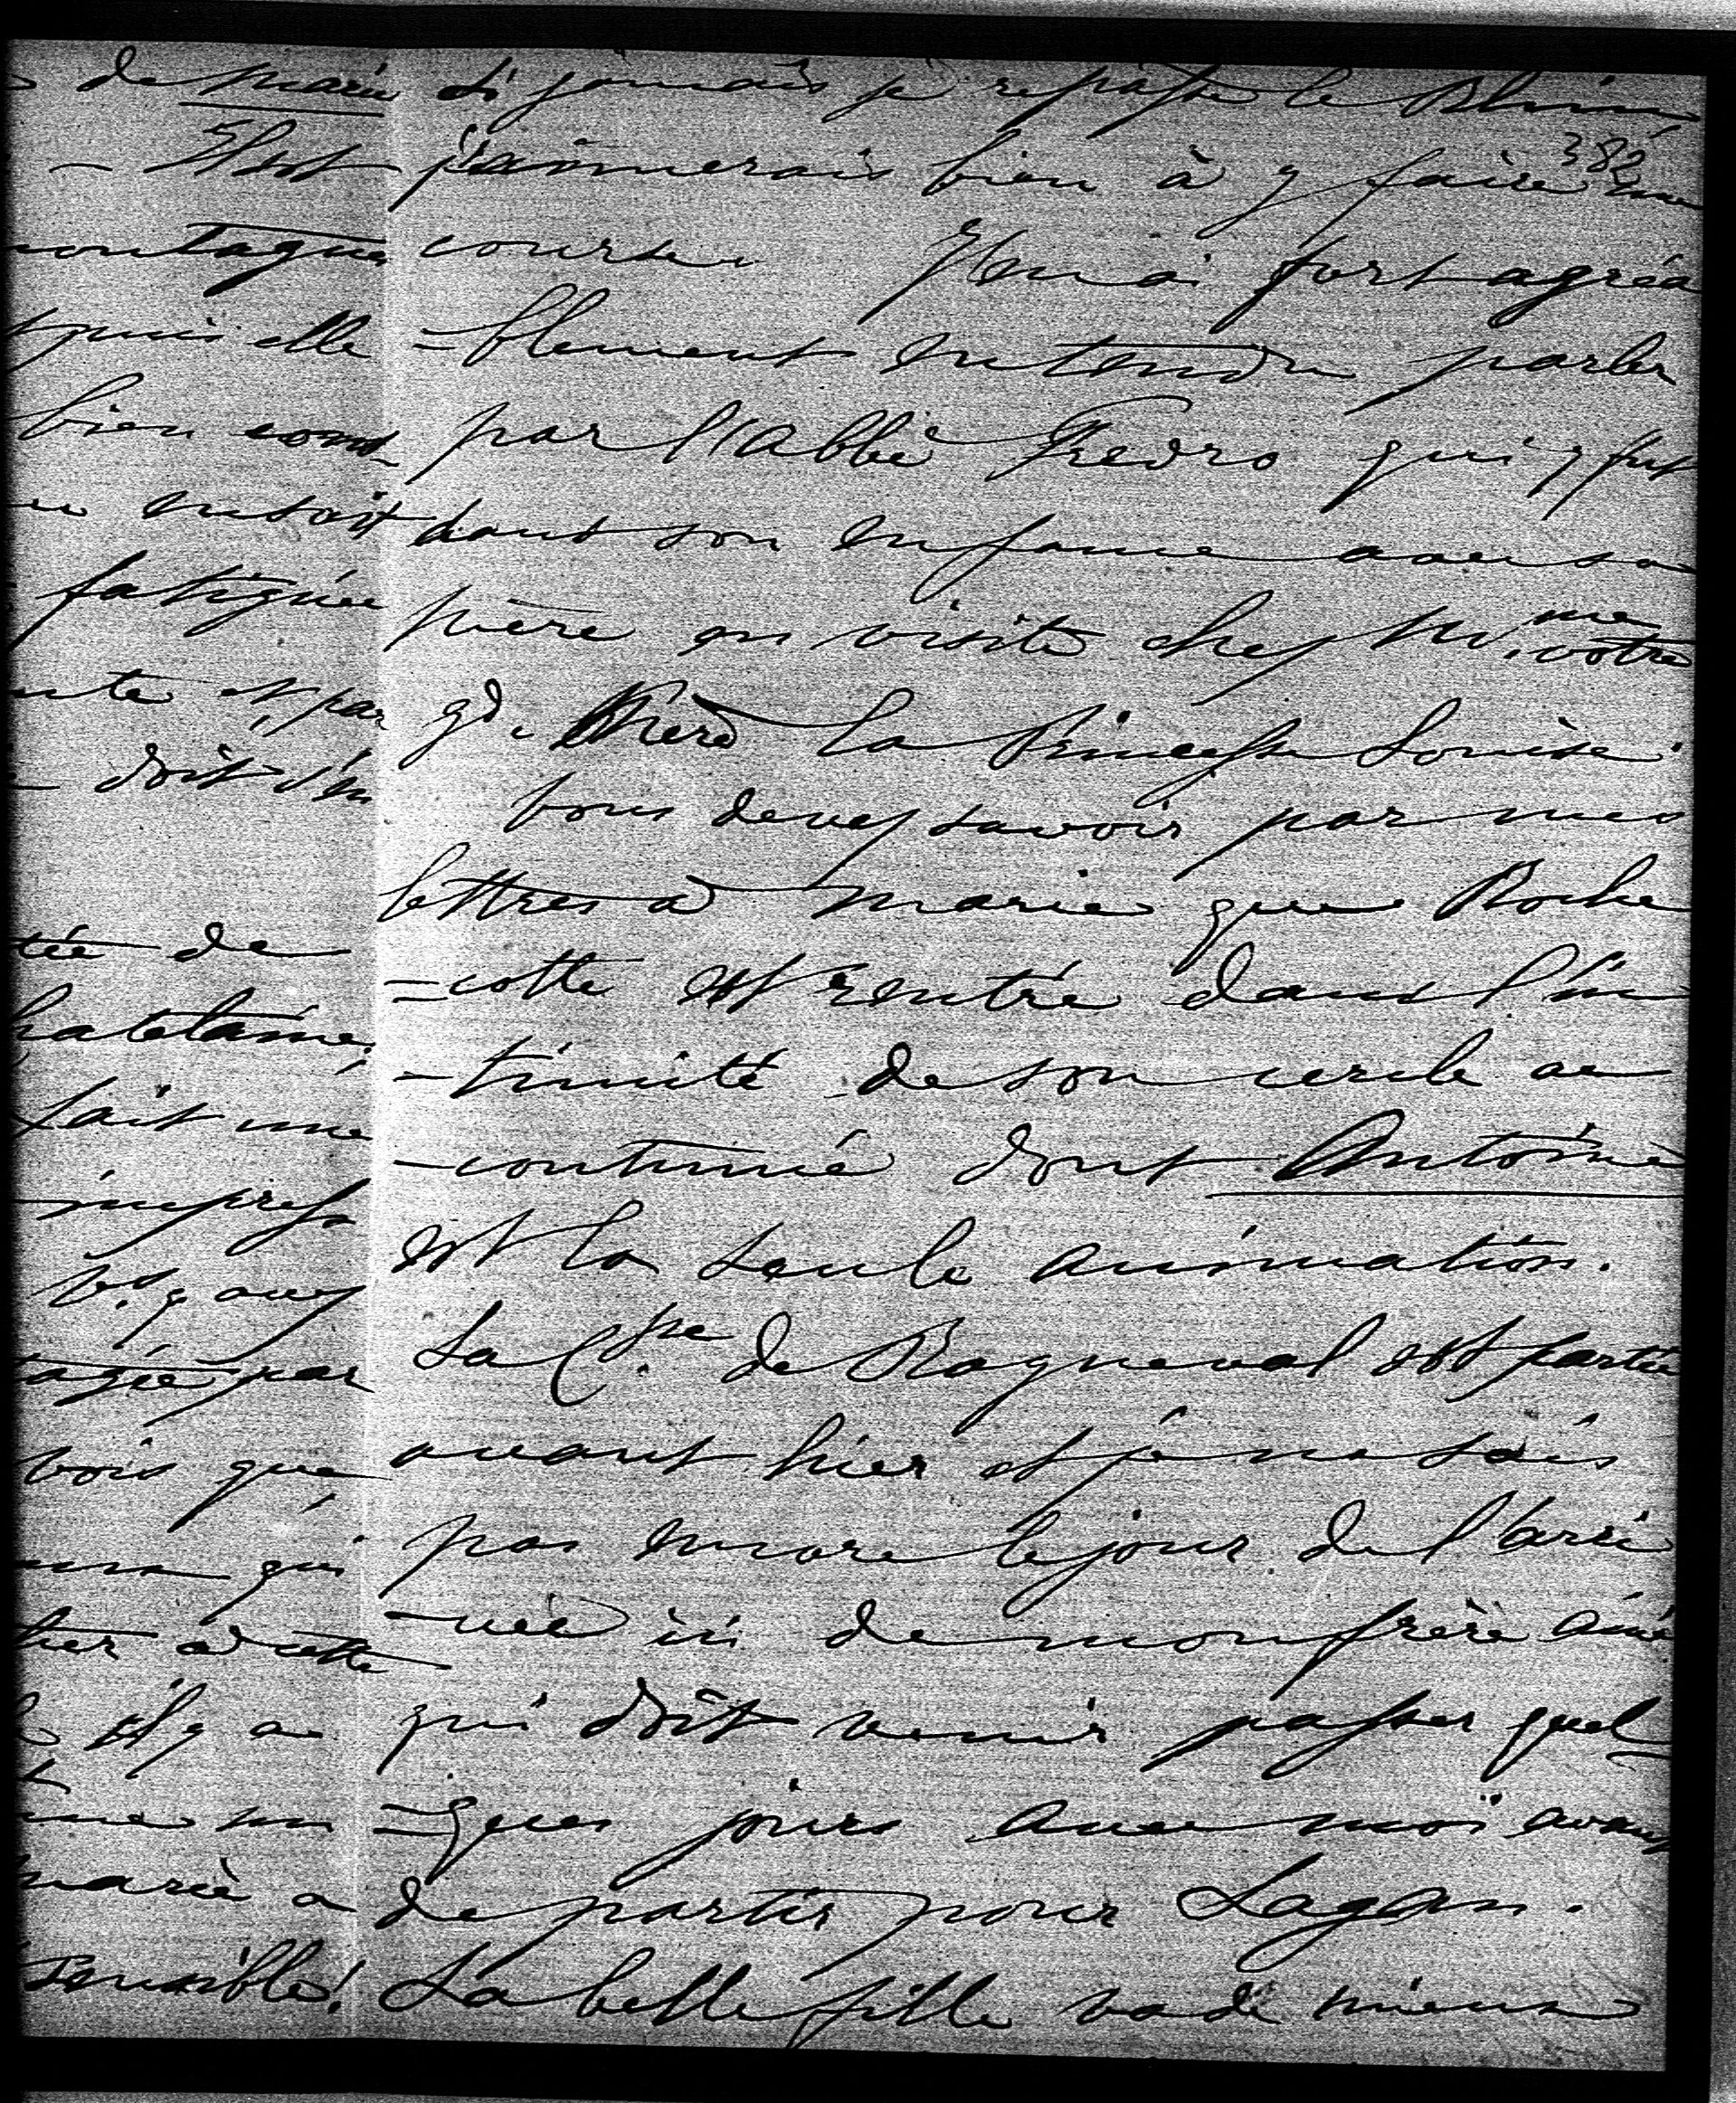 de Marie
- Il est
montagne
puis elle
bien com
fatiguée
et par
doit s'in
tée de
hatelaine.
fait une
impres
tagée par
vois que
qui
à cette
il y a
Marie a
sensible!
382
Si jamais je repasse le Rhin
j'aimerais bien à y faire une
course. J'en ai fort agréa
=blement entendu parler
par l'abbé Fredro qui y fut
dans son enfance avec sa
mère en visite chez M.me votre
gd. Mère la Princesse Louise.
Vous devez savoir par mes
lettres à Marie que Roche
=cotte est rentré dans l'in
-timité de son cercle ac
-coutumé dont Antoine
est la seule animation.
La C.sse de Rayneval est partie
avant hier et je ne sais
pas encore le jour de l'arri
-vée ici de mon frère ainé
qui doit venir passer quel
=ques jours avec moi avant
de partir pour Sagan.
Sa belle fille va de mieux